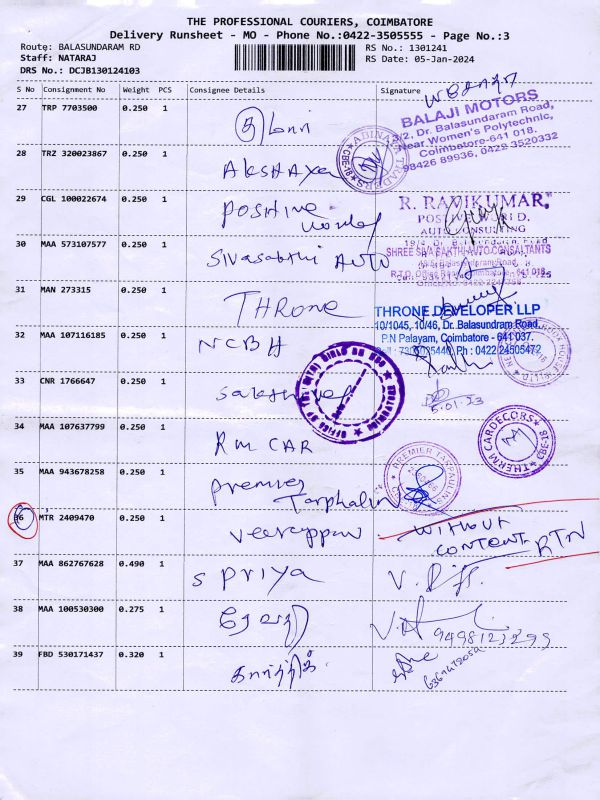 THE PROFESSIONAL COURIERS, COIMBATORE
Delivery Runsheet - MO - Phone No.:0422-3505555 - Page No.:3
Route: BALASUNDARAM RD
RS No.: 1301241
Staff: NATARAJ
RS Date: 05-Jan-2024
DRS No.: DCJB130124103
S No Consignment No Weight PCS Consignee Details Signature
27 TRP 7703500 0.250 1
BALAJI MOTORS
3/2, Dr. Balasundaram Road,
Near Women's Polytechnic,
Coimbatore-641 018.
98426 89936, 0422 3520332
28 TRZ 320023867 0.250 1 AKSHAYA
ABINAYA TRADERS CBE-18
29 CGL 100022674 0.250 1 Positive World
R. RAVIKUMAR,
POSITIVE WORLD.
AUTO CONSULTING
30 MAA 573107577 0.250 1 Sivasakthi AUTO
SHREE SIVA SAKTHI AUTO CONSALTANTS
31 MAN 273315 0.250 1 THRONE
THRONE DEVELOPER LLP
10/1045, 10/46, Dr. Balasundram Road,
P.N Palayam, Coimbatore - 641 037.
Ph : 0422 24505472
32 MAA 107116185 0.250 1 NCBH
33 CNR 1766647 0.250 1
5.01.23
34 MAA 107637799 0.250 1 RM CAR
THERM CARDECORS CBE-18
35 MAA 943678258 0.250 1 Premier Tarphalin
PREMIER TARPAULINS
36 MTR 2409470 0.250 1 Veerappan
WITHOUT
CONTENT RTN
37 MAA 862767628 0.490 1 S PRIYA
38 MAA 100530300 0.275 1 தேவி
39 FBD 530171437 0.320 1 கார்த்திக்